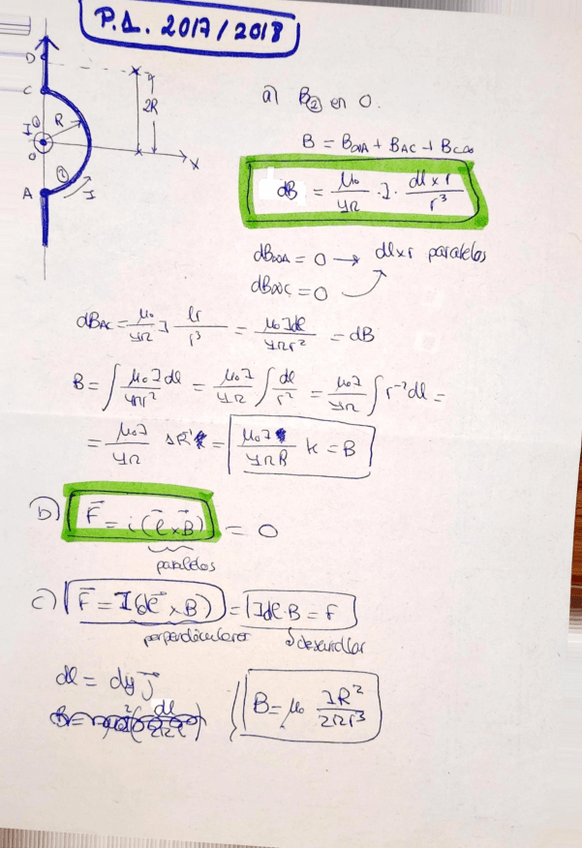 P.1. 2017/2018
D
C
2R
R
I
O
X
②
I
A
a) B② en O.
B = B∞A + BAC + BC∞
dB = μ₀/4π · I · dl x r / r³
dB∞A = 0 → dlxr paralelos
dB∞C = 0
dBAC = μ₀/4π I lr/r³ = μ₀Idl/4πr² = dB
B = ∫ μ₀Idl/4πr² = μ₀I/4π ∫ dl/r² = μ₀I/4π ∫ r⁻² dl =
= μ₀I/4π = μ₀I/4πR k = B
b) F⃗ = i(l⃗ x B⃗) = 0
paralelos
c) F⃗ = I(dl⃗ x B) = Idl·B = F
perpendiculares
desarrollar
dl = dy j⃗
B = μ₀ IR²/2πr³